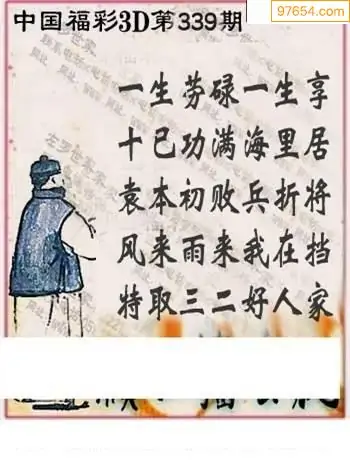 97654.com
中国福彩3D第339期
一生劳碌一生享
十已功满海里居
袁本初败兵折将
风来雨来我在挡
特取三二好人家